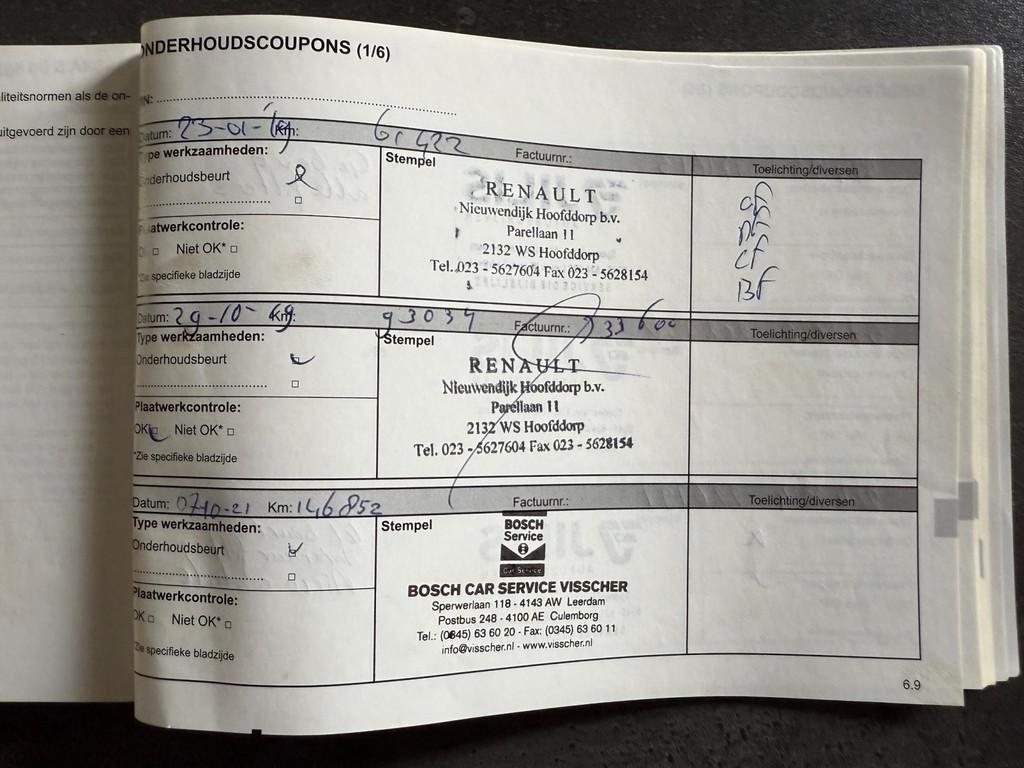 liteitsnormen als de on-
uitgevoerd zijn door een
ONDERHOUDSCOUPONS (1/6)
Datum: 23-01-19 Km: 61422 Factuurnr.:
Type werkzaamheden:
Stempel
Toelichting/diversen
Onderhoudsbeurt
Plaatwerkcontrole:
Niet OK*
*Zie specifieke bladzijde
RENAULT
Nieuwendijk Hoofddorp b.v.
Parellaan 11
2132 WS Hoofddorp
Tel. 023 - 5627604 Fax 023 - 5628154
OF
CF
BF
Datum: 29-10-19 Km: 93034 Factuurnr.: 833600
Toelichting/diversen
Type werkzaamheden:
Stempel
Onderhoudsbeurt
Plaatwerkcontrole:
OK Niet OK*
*Zie specifieke bladzijde
RENAULT
Nieuwendijk Hoofddorp b.v.
Parellaan 11
2132 WS Hoofddorp
Tel. 023 - 5627604 Fax 023 - 5628154
Datum: 07-10-21 Km: 146852 Factuurnr.:
Toelichting/diversen
Type werkzaamheden:
Stempel
Onderhoudsbeurt
Plaatwerkcontrole:
OK Niet OK*
Zie specifieke bladzijde
BOSCH
Service
Car Service
BOSCH CAR SERVICE VISSCHER
Sperwerlaan 118 - 4143 AW Leerdam
Postbus 248 - 4100 AE Culemborg
Tel.: (0345) 63 60 20 - Fax: (0345) 63 60 11
info@visscher.nl - www.visscher.nl
6.9